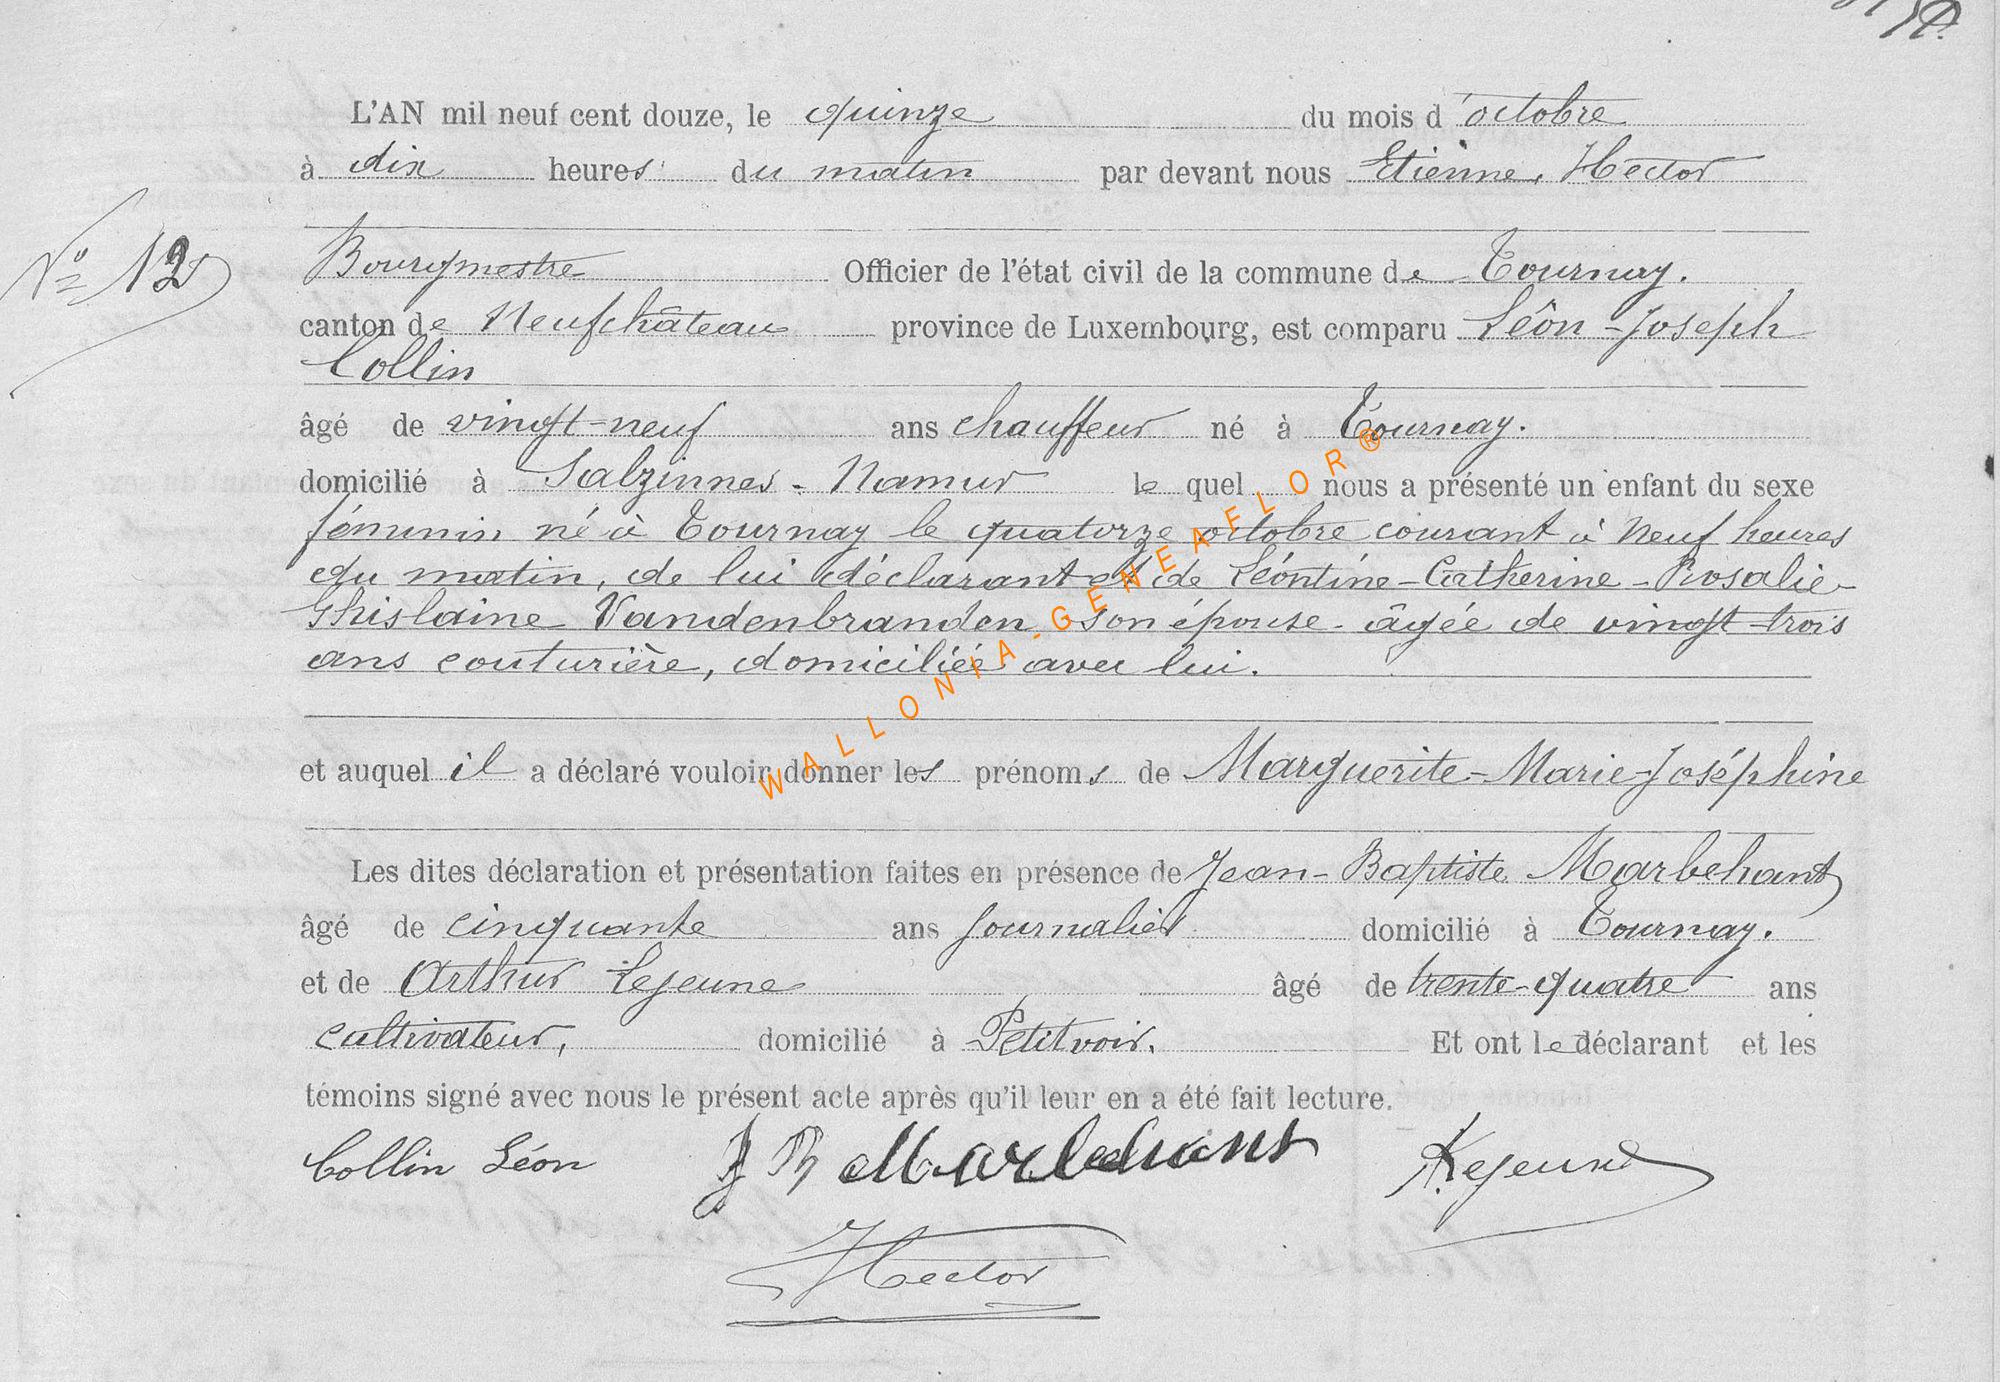 L'AN mil neuf cent douze, le quinze du mois d'octobre
à dix heures du matin par devant nous Etienne, Hector
N° 12
Bourgmestre Officier de l'état civil de la commune de Tournay.
canton de Neufchâteau province de Luxembourg, est comparu Léon-Joseph
Collin
âgé de vingt-neuf ans chauffeur né à Tournay.
domicilié à Salzinnes-Namur le quel nous a présenté un enfant du sexe
féminin né à Tournay le quatorze octobre courant à neuf heures
du matin, de lui déclarant et de Léontine-Catherine-Rosalie-
Ghislaine Vandenbranden son épouse âgée de vingt-trois
ans couturière, domiciliée avec lui.
et auquel il a déclaré vouloir donner les prénoms de Marguerite-Marie-Joséphine
Les dites déclaration et présentation faites en présence de Jean-Baptiste Marbehant
âgé de cinquante ans journalier domicilié à Tournay.
et de Arthur Lejeune âgé de trente-quatre ans
cultivateur, domicilié à Petitvoir. Et ont le déclarant et les
témoins signé avec nous le présent acte après qu'il leur en a été fait lecture.
Collin Léon J B Marbehant A. Lejeune
Hector
WALLONIA-GENEAFLOR®